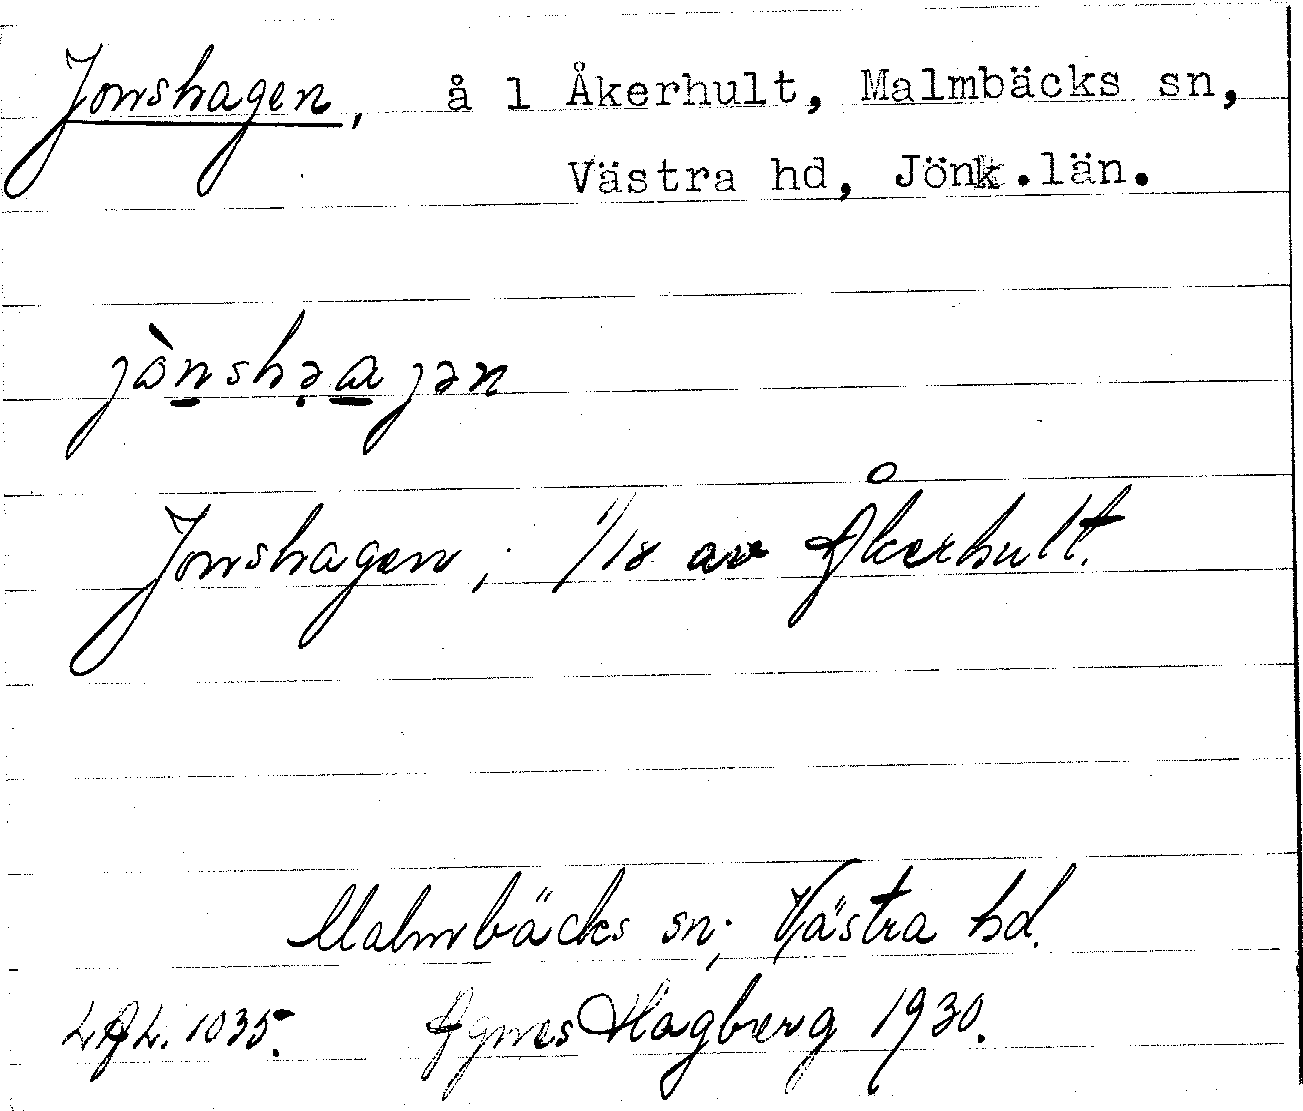 Jonshagen, å 1 Åkerhult, Malmbäcks sn,
Västra hd, Jönk.län.
Jonshagen; 1/18 av Åkerhult.
Malmbäcks sn; Västra hd.
LAL. 1035. Agnes Hagberg 1930.